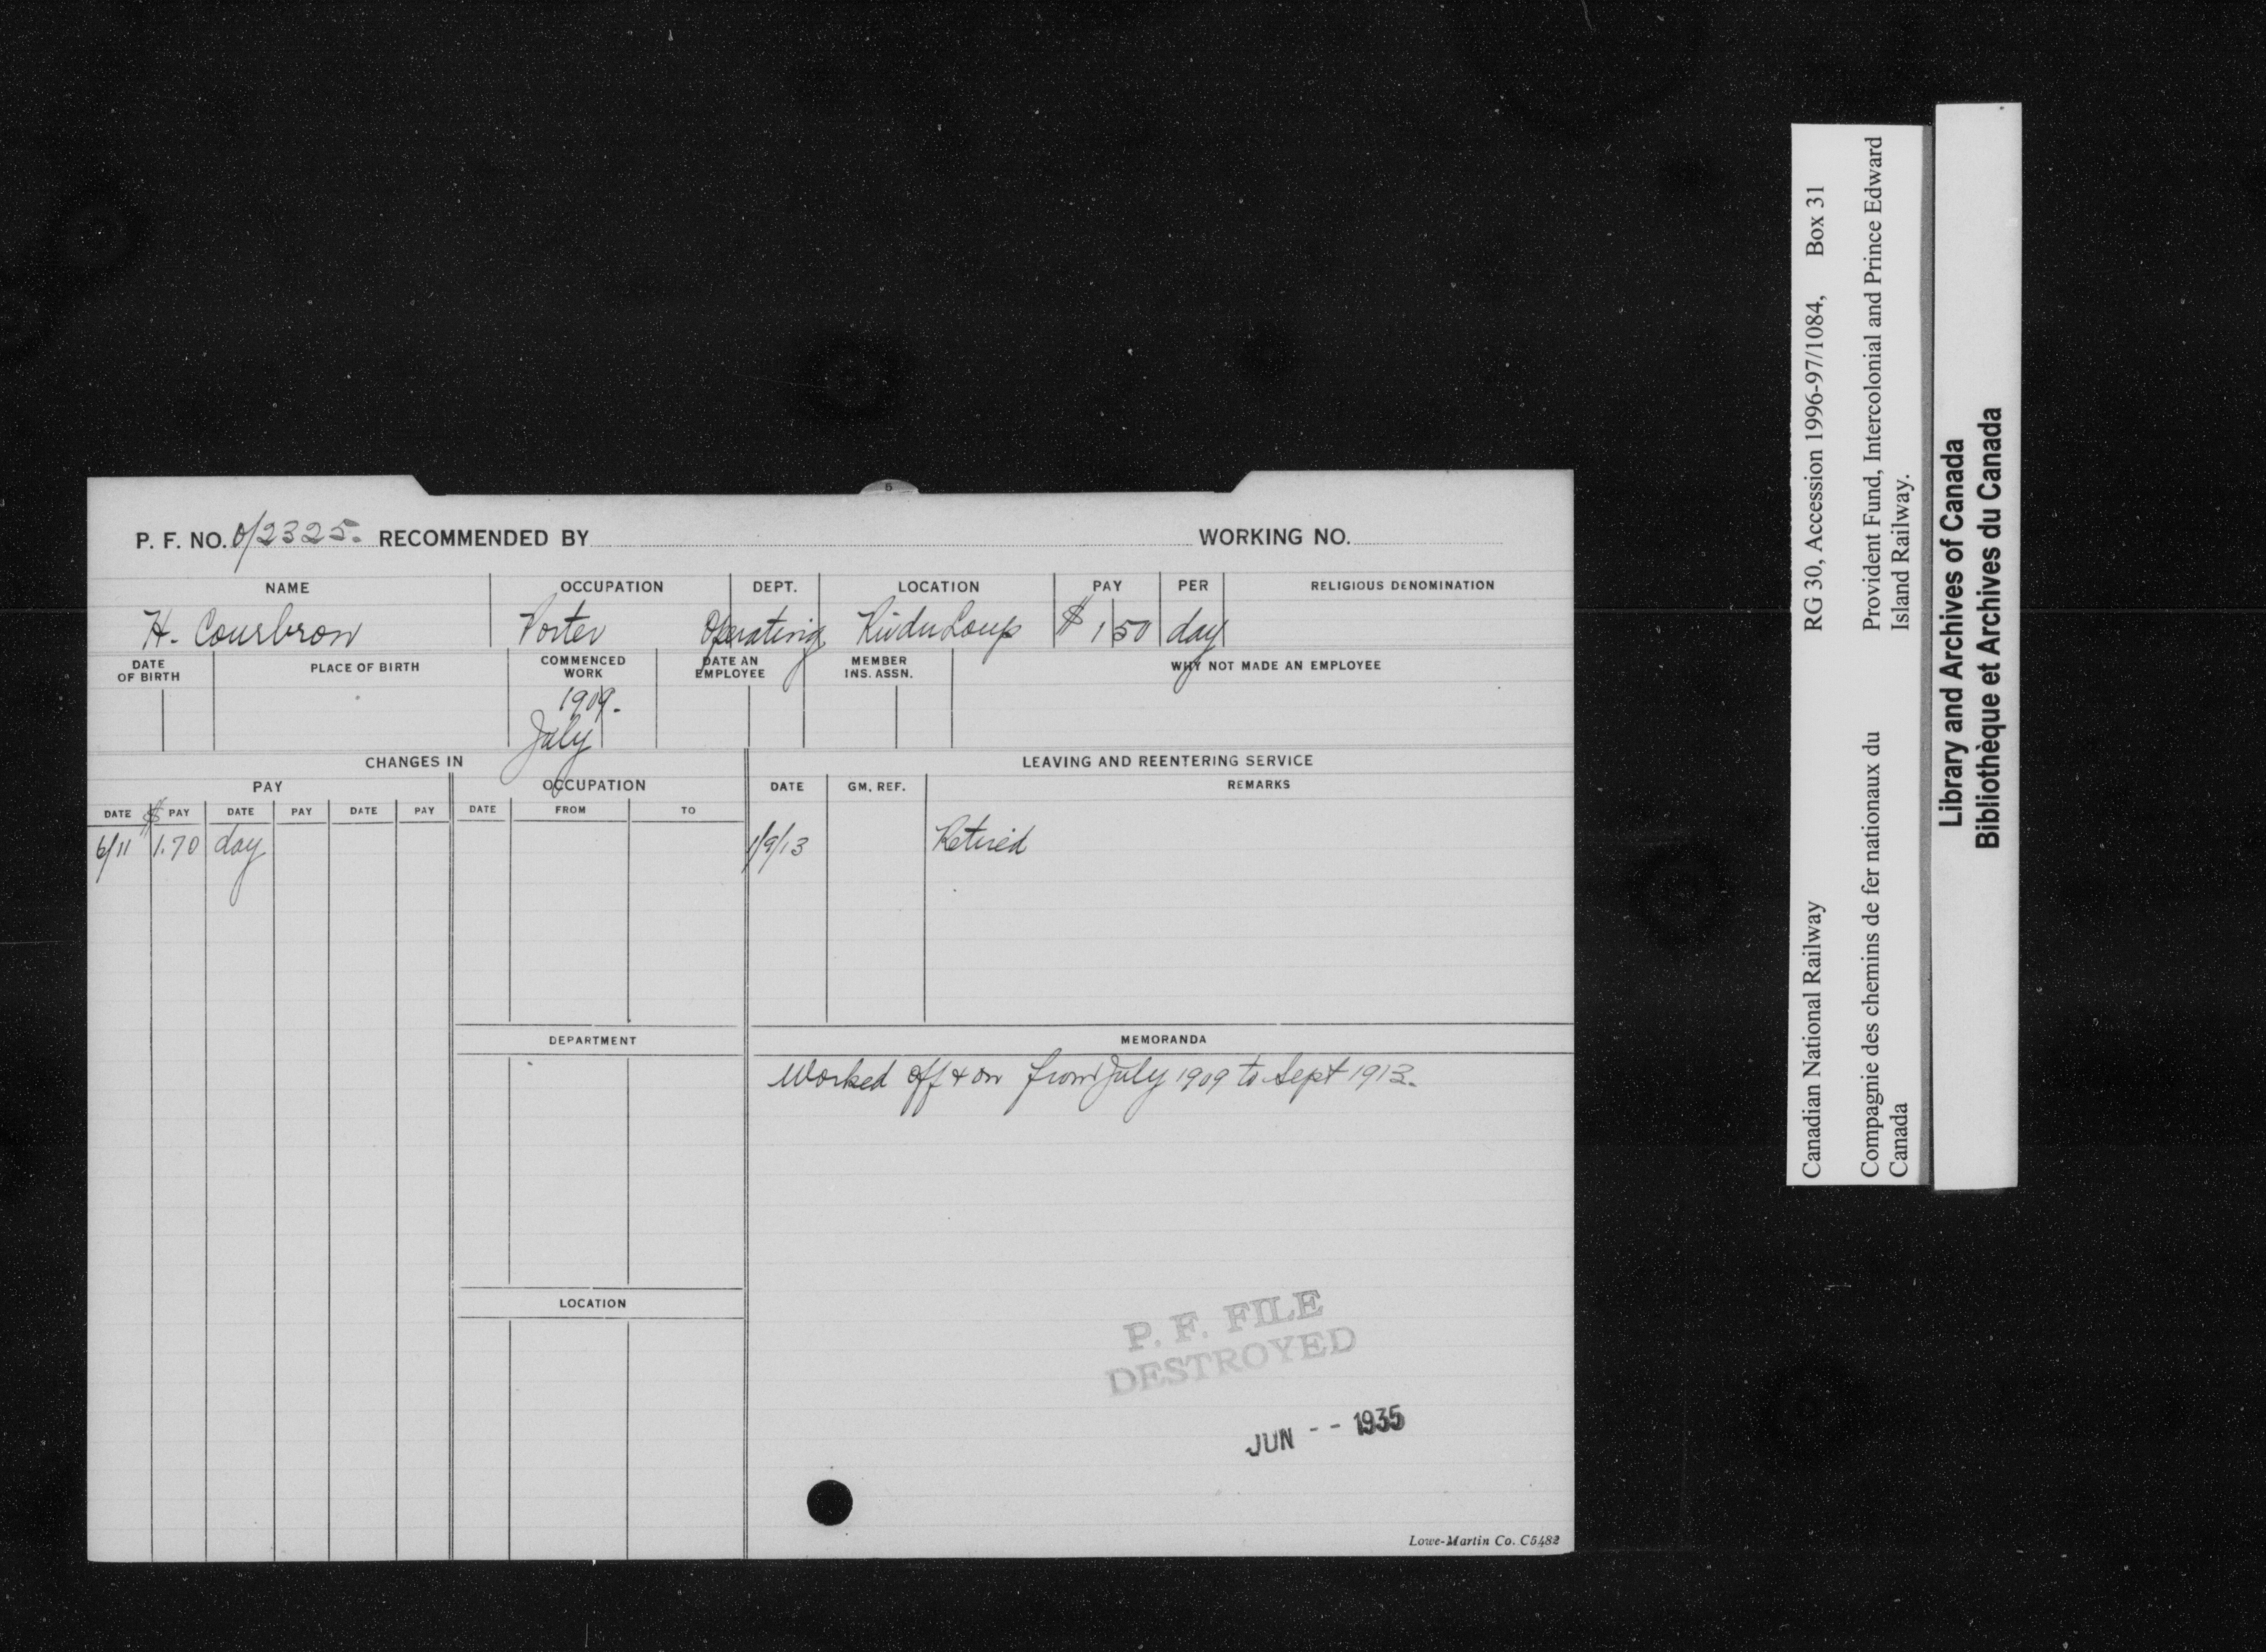 P. F. NO. 0/2325. RECOMMENDED BY WORKING NO.
NAME OCCUPATION DEPT. LOCATION PAY PER RELIGIOUS DENOMINATION
H. Courbron Porter Operating Riv du Loup $ 1 50 day
DATE OF BIRTH PLACE OF BIRTH COMMENCED WORK DATE AN EMPLOYEE MEMBER INS. ASSN. WHY NOT MADE AN EMPLOYEE
1909.
July
CHANGES IN LEAVING AND REENTERING SERVICE
PAY OCCUPATION DATE GM. REF. REMARKS
DATE $ PAY DATE PAY DATE PAY DATE FROM TO
6/11 1.70 day 1/9/13 Retired
DEPARTMENT MEMORANDA
Worked off & on from July 1909 to Sept 1913.
LOCATION
P. F. FILE
DESTROYED
JUN -- 1935
Lowe-Martin Co. C5482
Canadian National Railway RG 30, Accession 1996-97/1084, Box 31
Compagnie des chemins de fer nationaux du Provident Fund, Intercolonial and Prince Edward
Canada Island Railway.
Library and Archives of Canada
Bibliothèque et Archives du Canada